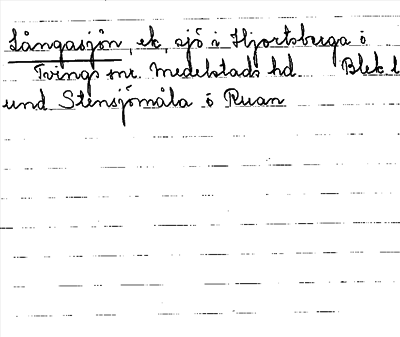 Långasjön, ek, sjö i Hjortsberga o
Tvings snr. Medelstads hd Blek l
und Stensjömåla o Ruan